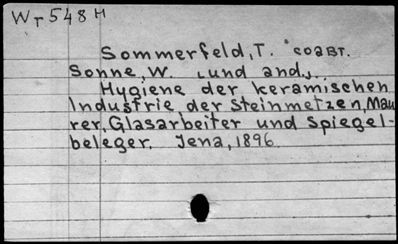 Wr 548 H
Sommerfeld, T. соавт.
Sonne, W. [und and.].
Hygiene der keramischen
Industrie der Steinmetzen, Mau
rer, Glasarbeiter und Spiegel-
beleger. Jena, 1896